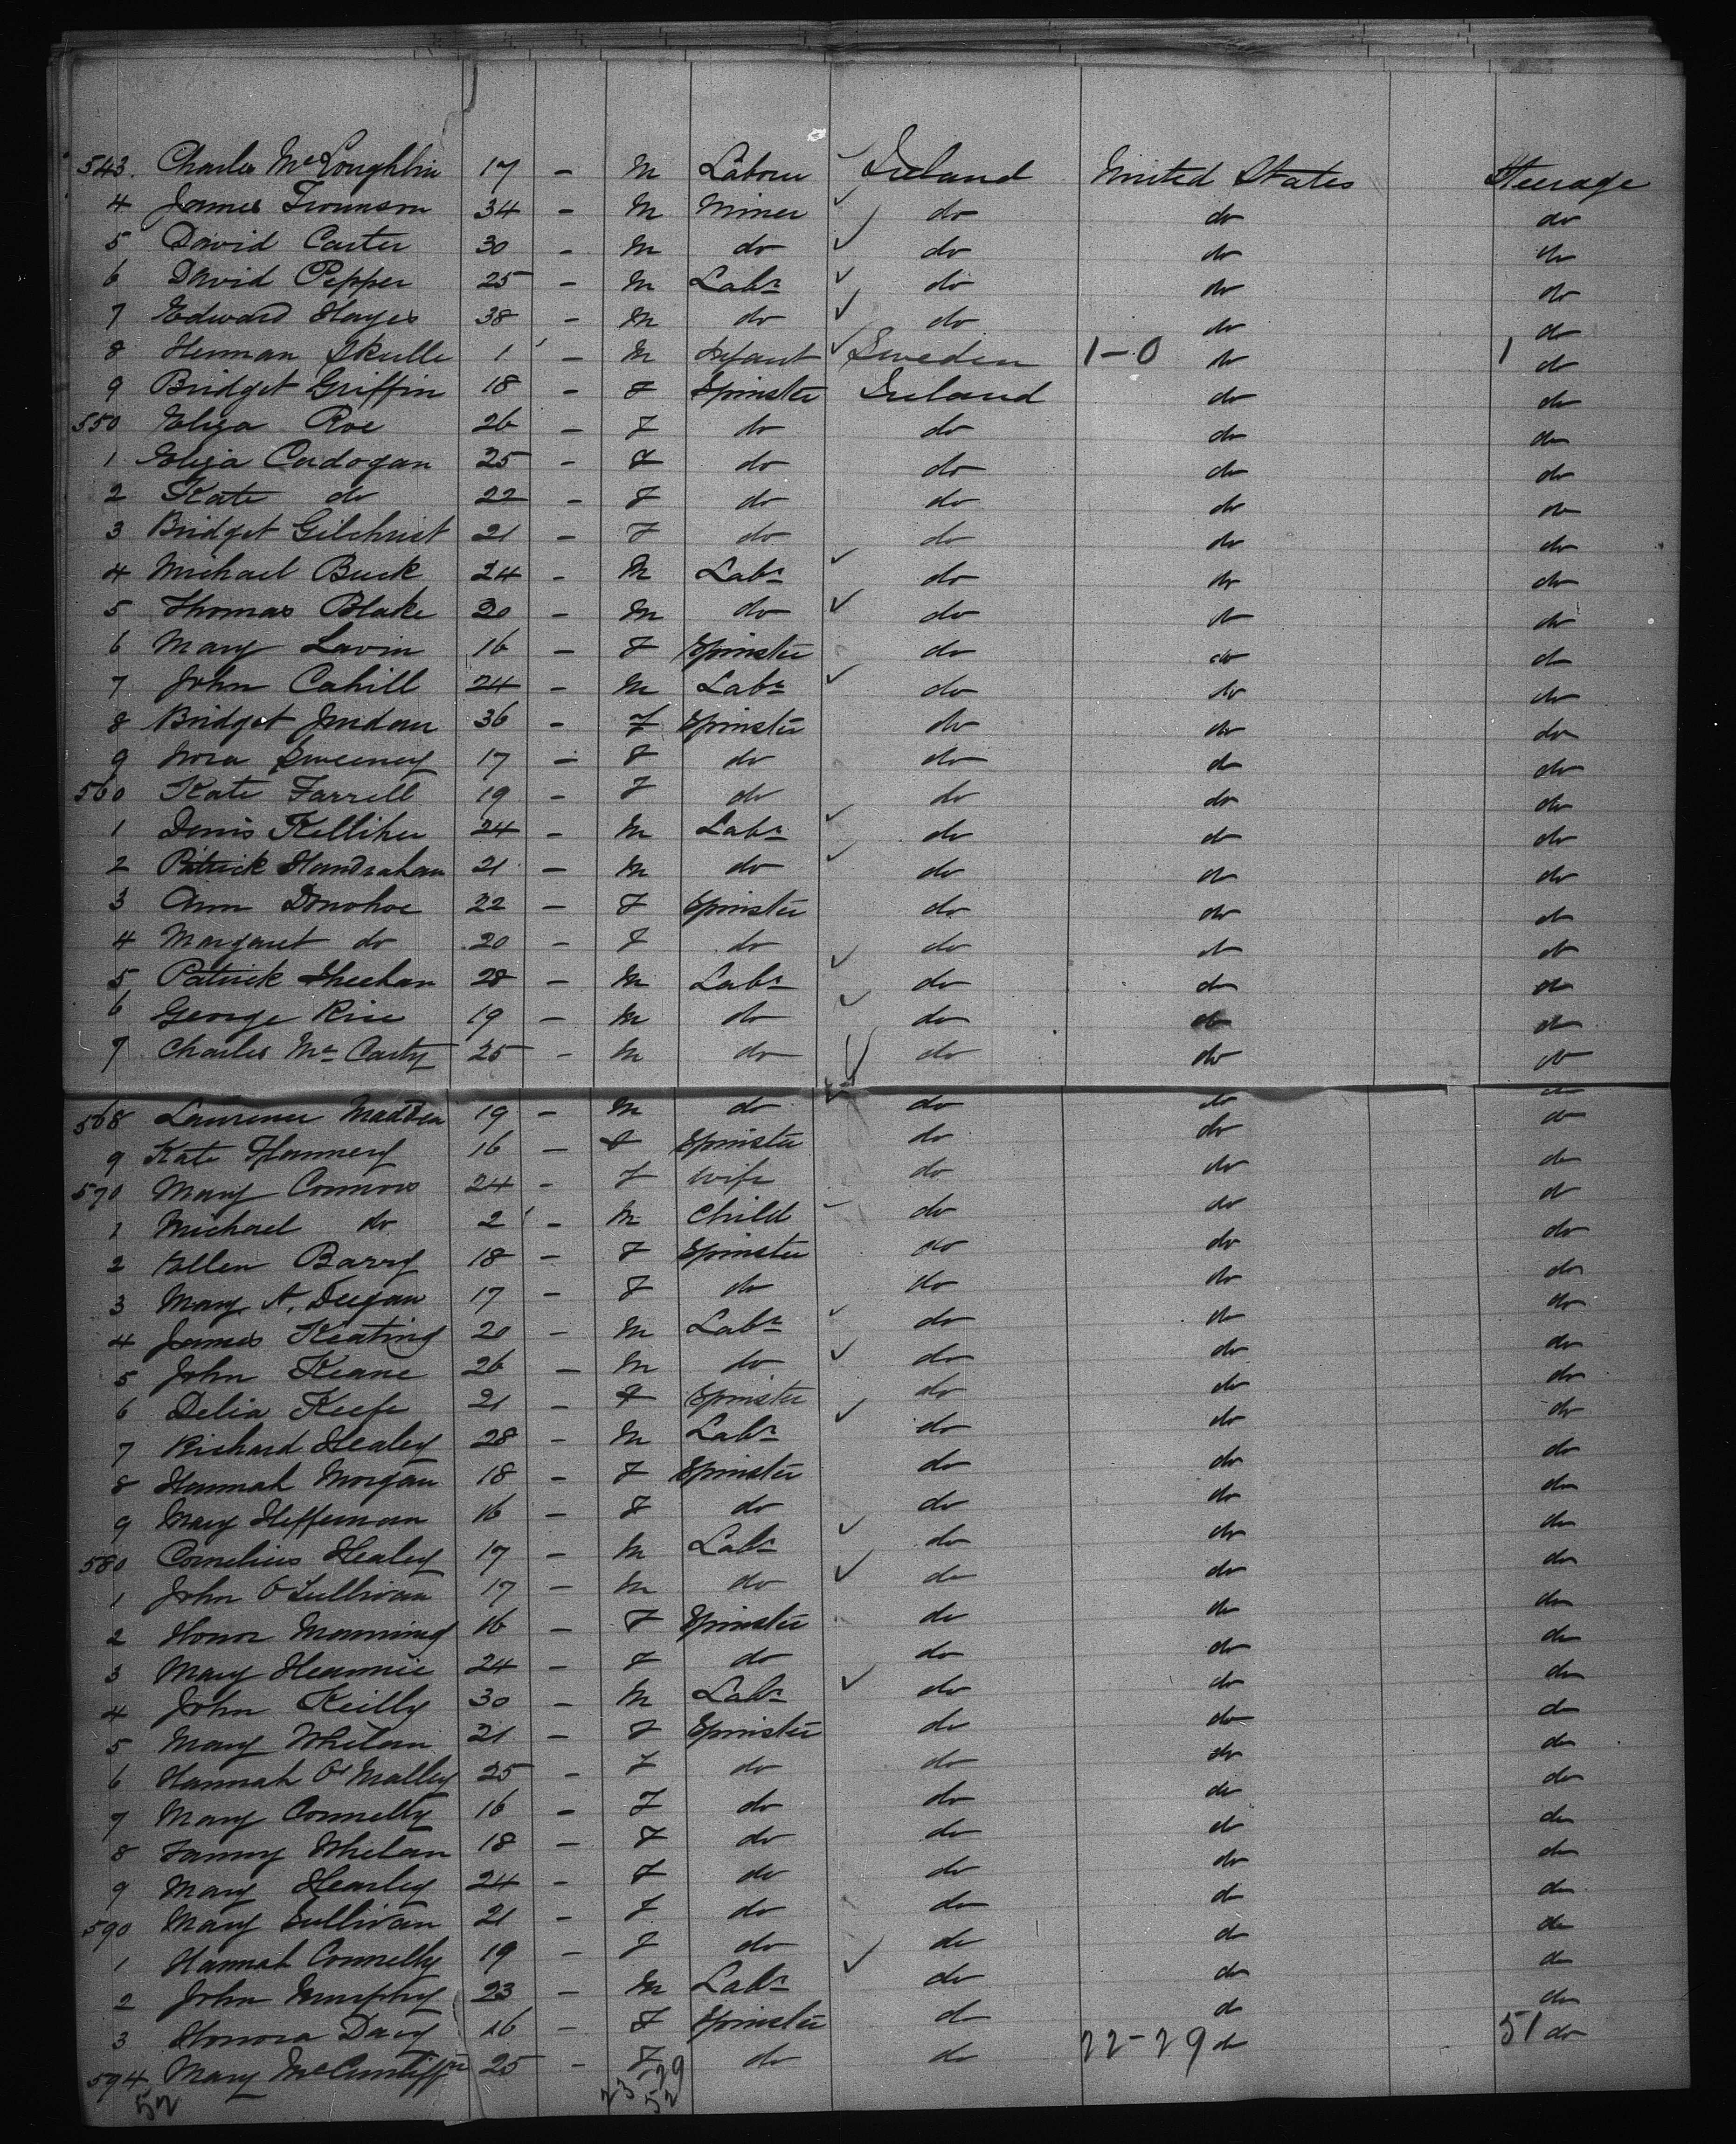 543. Charles McLoughlin 17 - M Labourer Ireland United States Steerage
4 James 34 - M Miner do do do
5 David Carter 30 - M do do do do
6 David Pepper 25 - M Labr do do do
7 Edward Hayes 38 - M do do do do
8 Herman Skulle 1 - M Infant Sweden 1-0 do 1 do
9 Bridget Griffin 18 - F Spinster Ireland do do
550 Eliza Roe 26 - F do do do do
1 Eliza Cadogan 25 - F do do do do
2 Kate do 22 - F do do do do
3 Bridget Gilchrist 21 - F do do do do
4 Michael Buck 24 - M Labr do do do
5 Thomas Blake 20 - M do do do do
6 Mary Lavin 16 - F Spinster do do do
7 John Cahill 24 - M Labr do do do
8 Bridget Jordan 36 - F Spinster do do do
9 Nora Sweeney 17 - F do do do do
560 Kate Farrell 19 - F do do do do
1 Denis Kelliher 24 - M Labr do do do
2 Patrick Handrahan 21 - M do do do do
3 Ann Donohoe 22 - F Spinster do do do
4 Margaret do 20 - F do do do do
5 Patrick Sheehan 28 - M Labr do do do
6 George Rice 19 - M do do do do
7 Charles Mc Carty 25 - M do do do do
568 Laurence Madden 19 - M do do do do
9 Kate Flannery 16 - F Spinster do do do
570 Mary Connors 24 - F Wife do do do
1 Michael do 2 - M Child do do do
2 Ellen Barry 18 - F Spinster do do do
3 Mary A. Deegan 17 - F do do do do
4 James Keating 20 - M Labr do do do
5 John Keane 26 - M do do do do
6 Delia Keefe 21 - F Spinster do do do
7 Richard Healey 28 - M Labr do do do
8 Hannah Morgan 18 - F Spinster do do do
9 Mary Heffernan 16 - F do do do do
580 Cornelius Healey 17 - M Labr do do do
1 John O'Sullivan 17 - M do do do do
2 Honor Manning 16 - F Spinster do do do
3 Mary 24 - F do do do do
4 John Keilly 30 - M Labr do do do
5 Mary Whelan 21 - F Spinster do do do
6 Hannah O'Malley 25 - F do do do do
7 Mary Connelly 16 - F do do do do
8 Fanny Whelan 18 - F do do do do
9 Mary Hearley 24 - F do do do do
590 Mary Sullivan 21 - F do do do do
1 Hannah Connelly 19 - F do do do do
2 John Murphy 23 - M Labr do do do
3 Honora Davy 16 - F Spinster do do do
594 Mary 25 - F do do 22-29 do 51 do
52 23 29
52